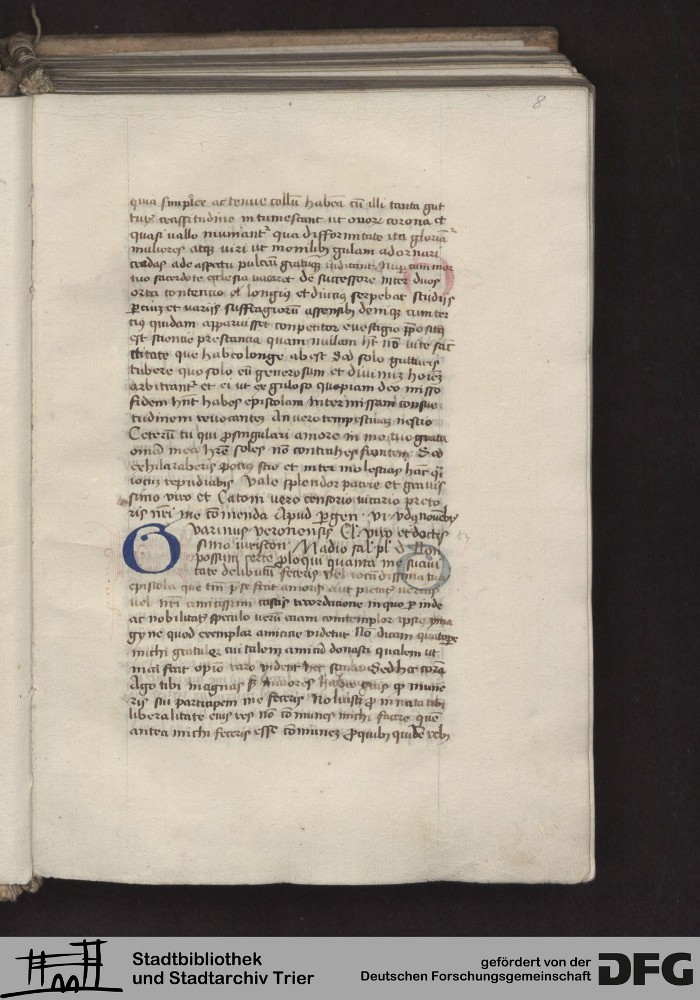 8
quia simplex ac tenue collū habēa cū illi tanta gut
turꝭ crassitudine intumescant ut onore corona et
quasi vallo muniantʳ qua difformitate ita gloriā
mulieres atqꝫ viri ut monilibꝫ gulam adornari
credas ade aspectu pulcrū gratūqꝫ iudicant Nuꝑ cum mor
tuo sacerdote ecclesia vacaret de successore inter duos
orta contentio et longiꝰ et diuciꝰ serpebat studijs
ꝑciūꝫ et varijs suffragiorū assensibꝫ demqꝫ cum ter
ciꝰ quidam apparuisset conpetitor e vestigio ꝓpositꝰ
est scientie prestancia quam nullam hꝫ nō vite sāc
titate que hab eo longe abest Sed solo gutturis
tubere quo solo eū generosum et diuinuꝫ hoīeꝫ
arbitrantʳ et ei ut ex guloso quopiam deo misso
fidem hn̄t habes epistolam intermissam consue
tudinem revocantem An vero tempestiuaꝫ nescio
Ceterū tu qui ꝓ singulari amore in me tuo grata
omīa mea hr̄e soles nō contrahes frontem Sed
exhilaraberis pocius scio et inter molestias hāc qⁱ
iocūs repudiabis Vale splendor patrie et gravis
simo viro et Catoni vero censorio vicario preto
ris nr̄i me cōmenda Apud ꝑgen · vi · ydꝰ novēbrꝫ
Gvarinus veronensis Cl. viro et doctis
simo iuriscon · Madio sal · pl d · Non
possum certe ꝓloqui quanta me suaui
tate delibutū feceris vel iocūdissima tua
epistola que tm̄ ꝑ se fecit amoris aut pietatꝭ
vel nr̄i amitissimi recordacione in quo ꝑinde
ac nobilitatꝭ speculo verū eciam contemplor
gyne quod exemplar amicicie videtur Nō dicam quātope
michi gratulor cui talem amicū donasti qualem ut
mal fecit opīo raro vident hec secula Sed hec corā
Ago tibi magnas maiores habeo grās qꝫ mune
ris sui participem me feceris Noluisti ꝓ innata tibi
liberalitate eius res nō cōmunes michi facere que
antea michi feceris esse cōmunes ꝓ quibꝫ quidē rebꝫ
Stadtbibliothek
und Stadtarchiv Trier
gefördert von der
Deutschen Forschungsgemeinschaft
DFG